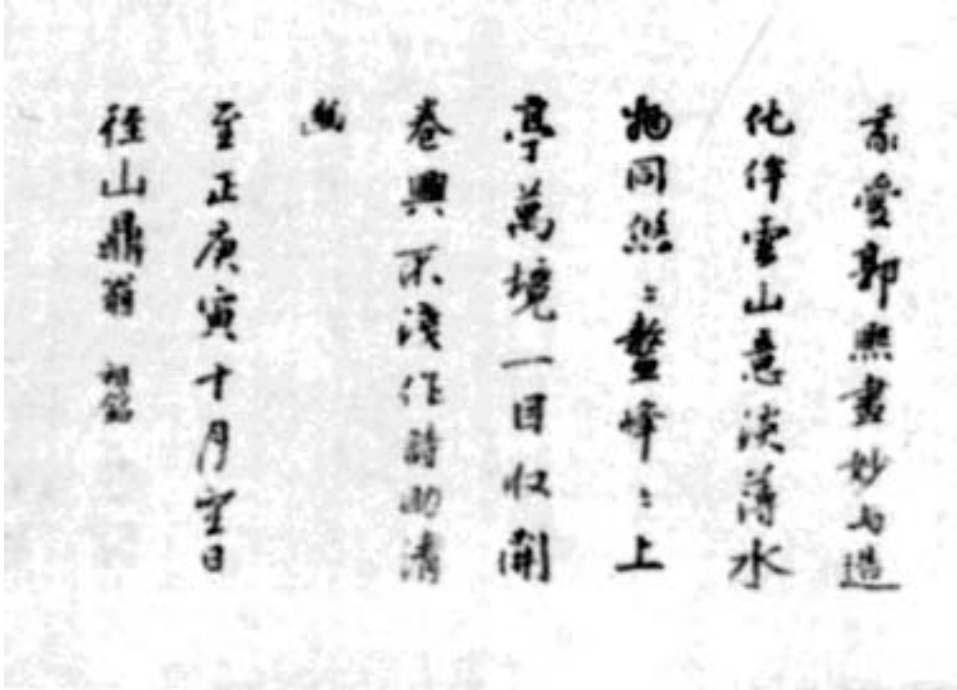 素愛郭熙畫妙与造
化侔雲山意淡薄水
物同悠々鰲峰々上
亭萬境一目収開
卷興不淺作詩助清
幽
至正庚寅十月望日
徑山鼎翁 祖銘